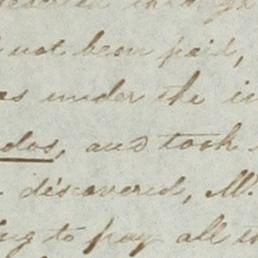 not been paid,
as under the
dos, and took
discovered, M.
ing to pay all